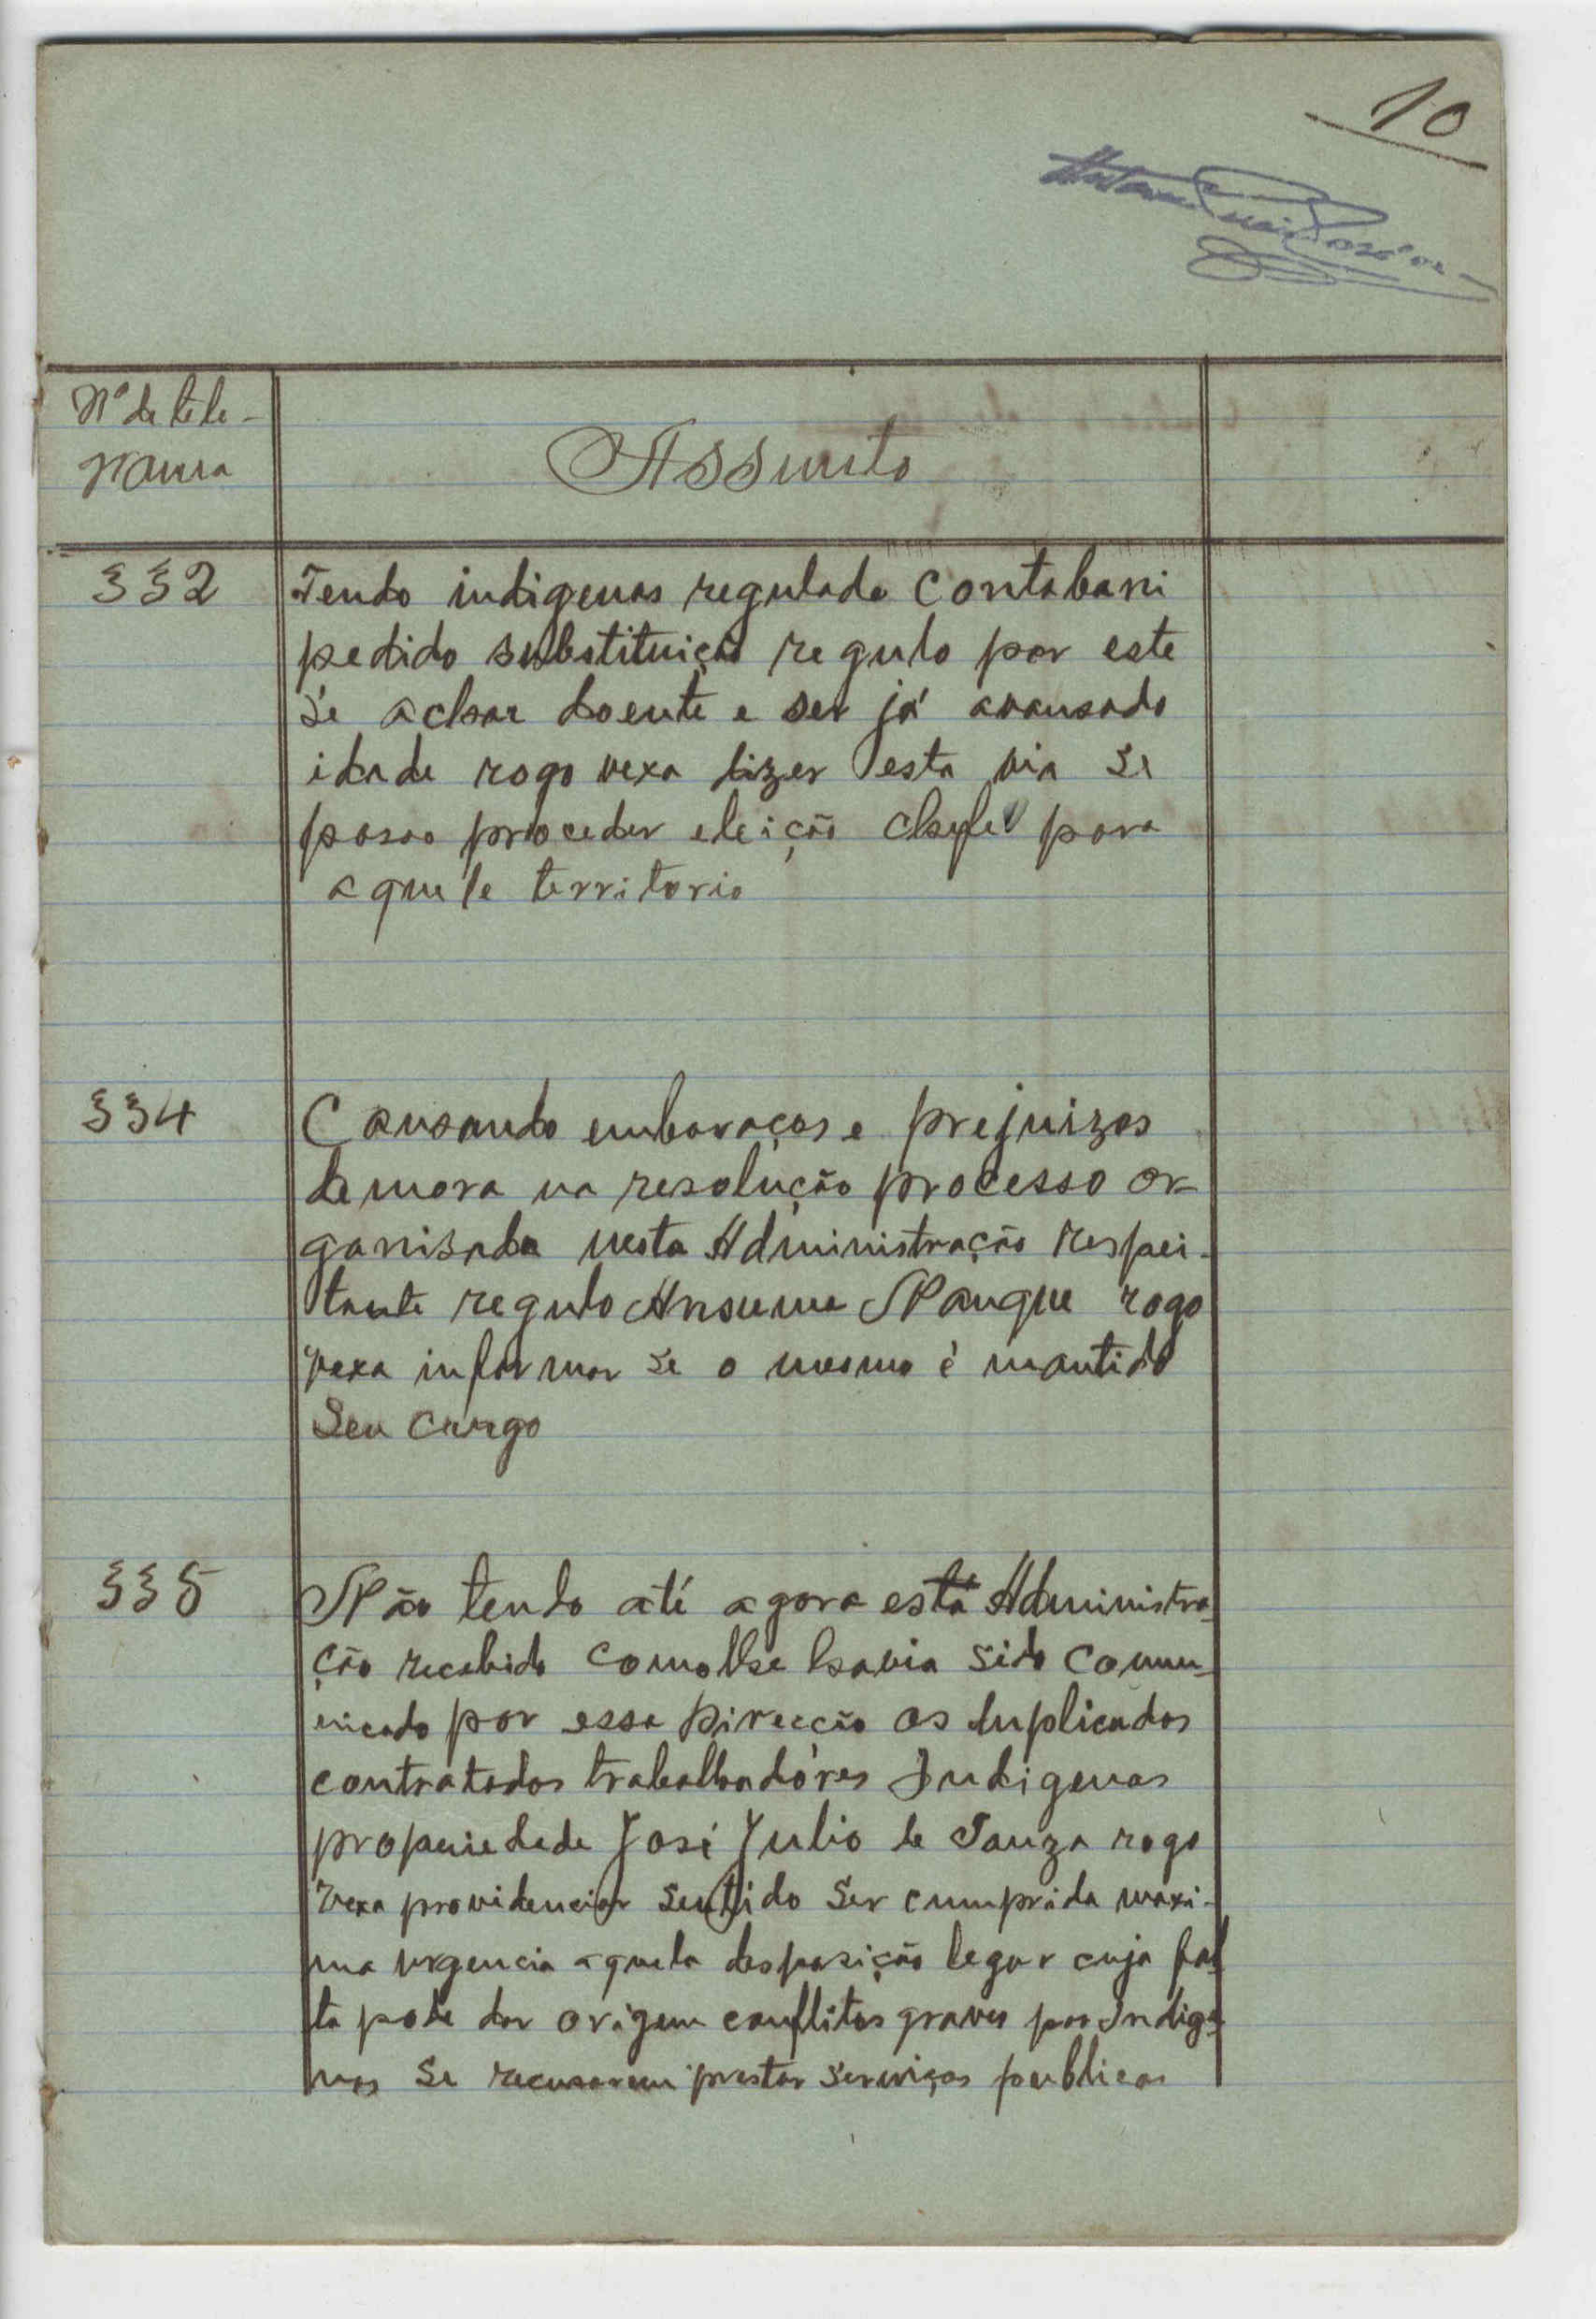 10
Nº de tele-
grama
Assunto
332
Tendo indigenas regulado Contabani
pedido substituição regulo por este
se achar doente e ser já avansado
idade rogo vexa dizer esta via se
posso proceder eleição chefe para
aquele territorio
334
Causando embaraços e prejuizos
demora na resolução processo or-
ganisado nesta Administração respei-
tante regulo Ansumane rogo
vexa informar se o mesmo é mantido
seu cargo
335
Não tendo até agora está Administra-
ção recebido como lhe havia sido comu-
nicado por essa Direcção os duplicados
contratados trabalhadores Indigenas
propriedade José Julio de Souza rogo
vexa providenciar sentido ser cumprida maxi-
ma urgencia aquela desposição legar cuja fal
ta pode dar origem conflitos graves por Indige-
nas se recusarem prestar serviços publicos